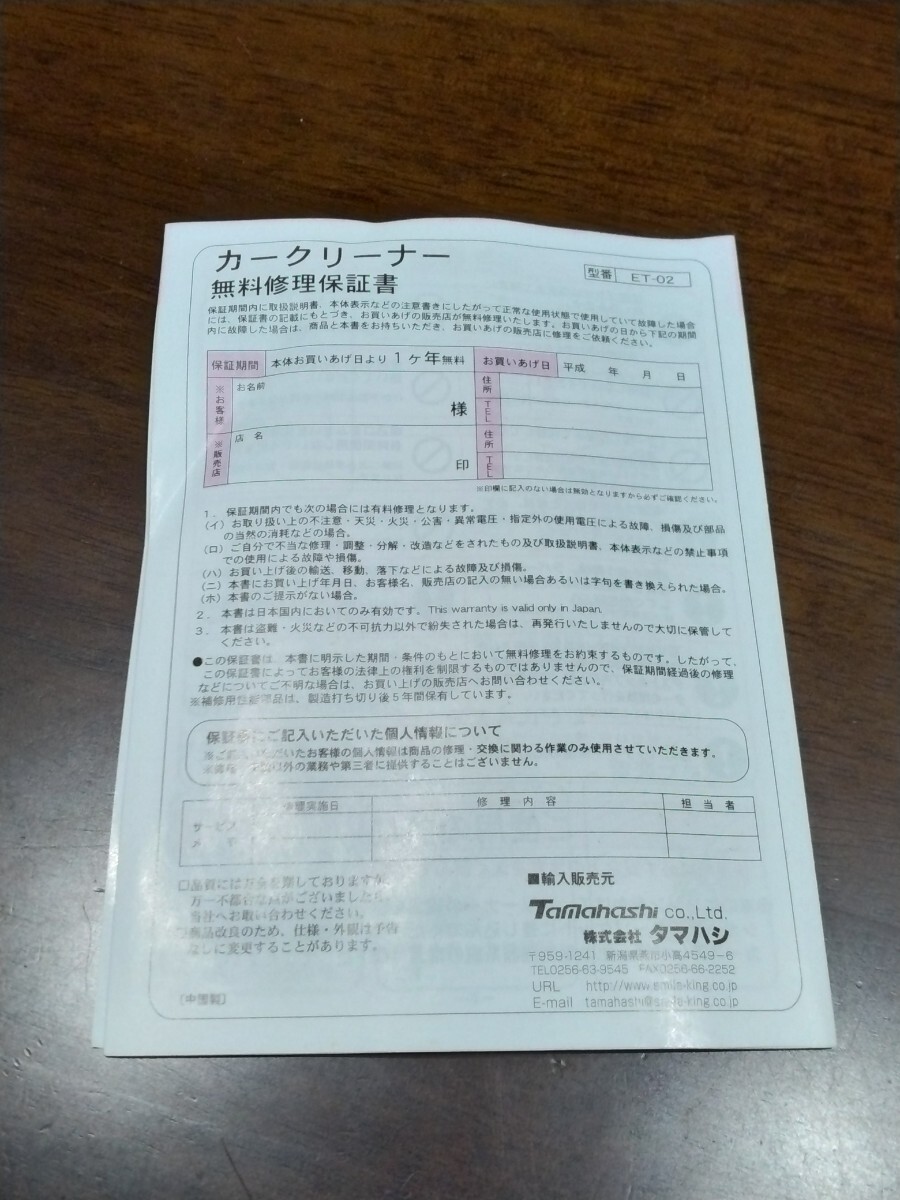 カークリーナー
型番 ET-02
無料修理保証書
保証期間内に取扱説明書、本体表示などの注意書きにしたがって正常な使用状態で使用していて故障した場合
には、保証書の記載にもとづき、お買いあげの販売店が無料修理いたします。お買いあげの日から下記の期間
内に故障した場合は、商品と本書をお持ちいただき、お買いあげの販売店に修理をご依頼ください。
保証期間 本体お買いあげ日より1ヶ年無料 お買いあげ日 平成 年 月 日
※お客様 お名前 様 住所
TEL
※販売店 店名 印 住所
TEL
※印欄に記入のない場合は無効となりますから必ずご確認ください。
1. 保証期間内でも次の場合には有料修理となります。
(イ)お取り扱い上の不注意・天災・火災・公害・異常電圧・指定外の使用電圧による故障、損傷及び部品
の当然の消耗などの場合。
(ロ)ご自分で不当な修理・調整・分解・改造などをされたもの及び取扱説明書、本体表示などの禁止事項
での使用による故障や損傷。
(ハ)お買い上げ後の輸送、移動、落下などによる故障及び損傷。
(ニ)本書にお買い上げ年月日、お客様名、販売店の記入の無い場合あるいは字句を書き換えられた場合。
(ホ)本書のご提示がない場合。
2. 本書は日本国内においてのみ有効です。This warranty is valid only in Japan.
3. 本書は盗難・火災などの不可抗力以外で紛失された場合は、再発行いたしませんので大切に保管して
ください。
●この保証書は、本書に明示した期間・条件のもとにおいて無料修理をお約束するものです。したがって、
この保証書によってお客様の法律上の権利を制限するものではありませんので、保証期間経過後の修理
などについてご不明な場合は、お買い上げの販売店へお問い合わせください。
※補修用性能部品は、製造打ち切り後5年間保有しています。
保証書にご記入いただいた個人情報について
※ご記入いただいたお客様の個人情報は商品の修理・交換に関わる作業のみ使用させていただきます。
以外の業務や第三者に提供することはございません。
修理実施日 修理内容 担当者
サービス
メモ
□品質には万全を期しておりますが、
万一不都合な点がございましたら、
当社へお問い合わせください。
□商品改良のため、仕様・外観は予告
なしに変更することがあります。
〔中国製〕
■輸入販売元
Tamahashi co.,Ltd.
株式会社 タマハシ
〒959-1241 新潟県燕市小高4549-6
TEL0256-63-9545 FAX0256-66-2252
URL http://www.smile-king.co.jp
E-mail tamahashi@smile-king.co.jp